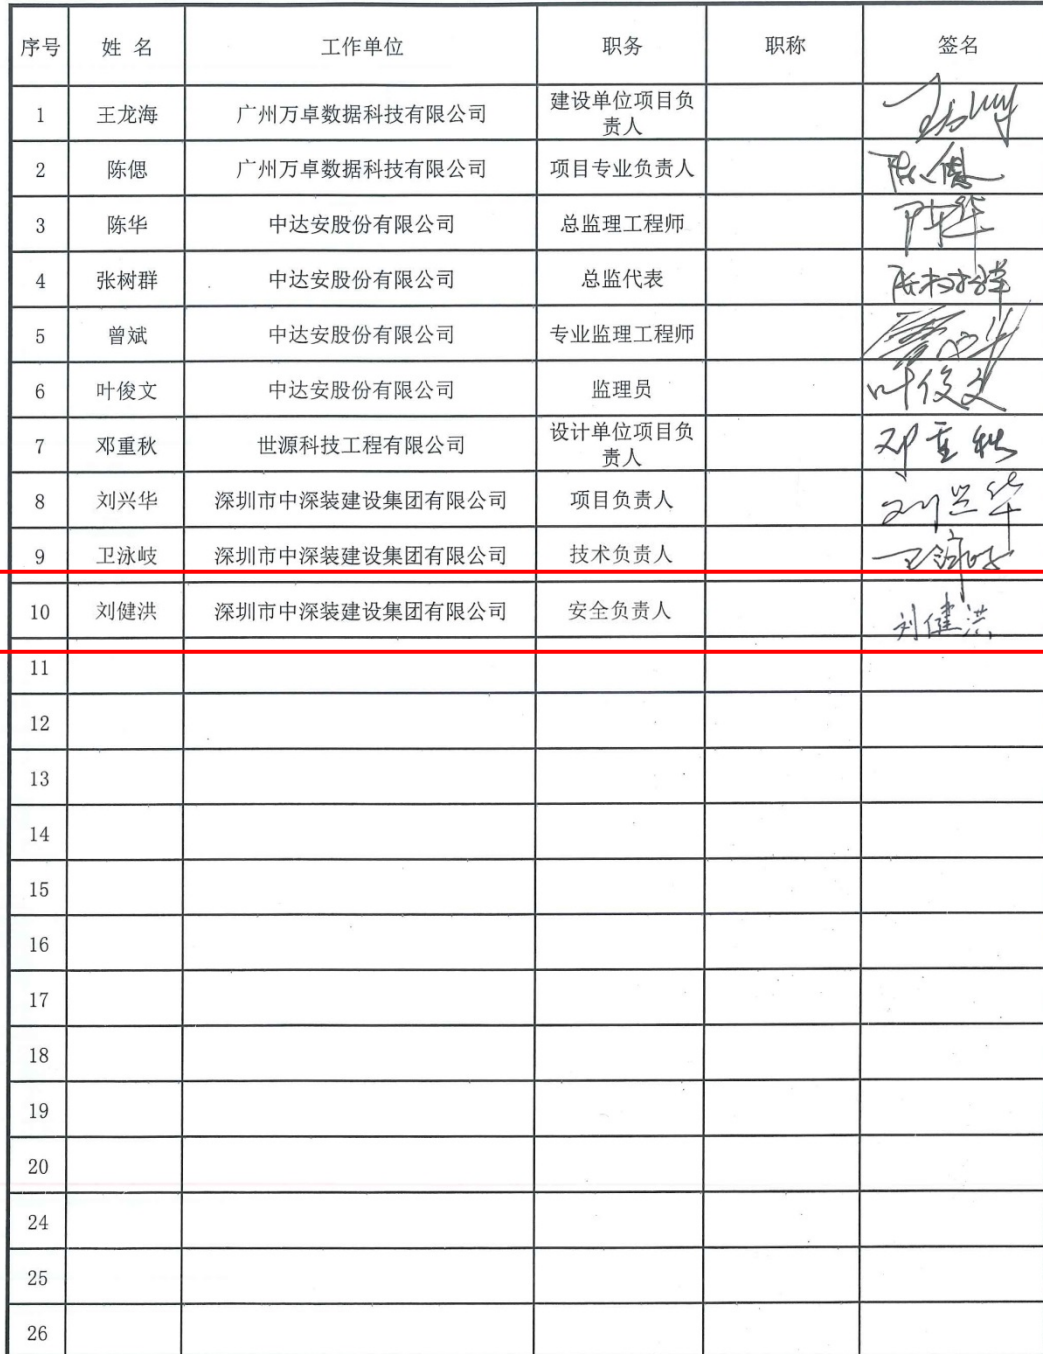 序号 姓 名 工作单位 职务 职称 签名
1 王龙海 广州万卓数据科技有限公司 建设单位项目负
责人
2 陈偲 广州万卓数据科技有限公司 项目专业负责人 陈偲
3 陈华 中达安股份有限公司 总监理工程师 陈华
4 张树群 中达安股份有限公司 总监代表
5 曾斌 中达安股份有限公司 专业监理工程师
6 叶俊文 中达安股份有限公司 监理员 叶俊文
7 邓重秋 世源科技工程有限公司 设计单位项目负
责人 邓重秋
8 刘兴华 深圳市中深装建设集团有限公司 项目负责人 刘兴华
9 卫泳岐 深圳市中深装建设集团有限公司 技术负责人
10 刘健洪 深圳市中深装建设集团有限公司 安全负责人 刘健洪
11
12
13
14
15
16
17
18
19
20
24
25
26